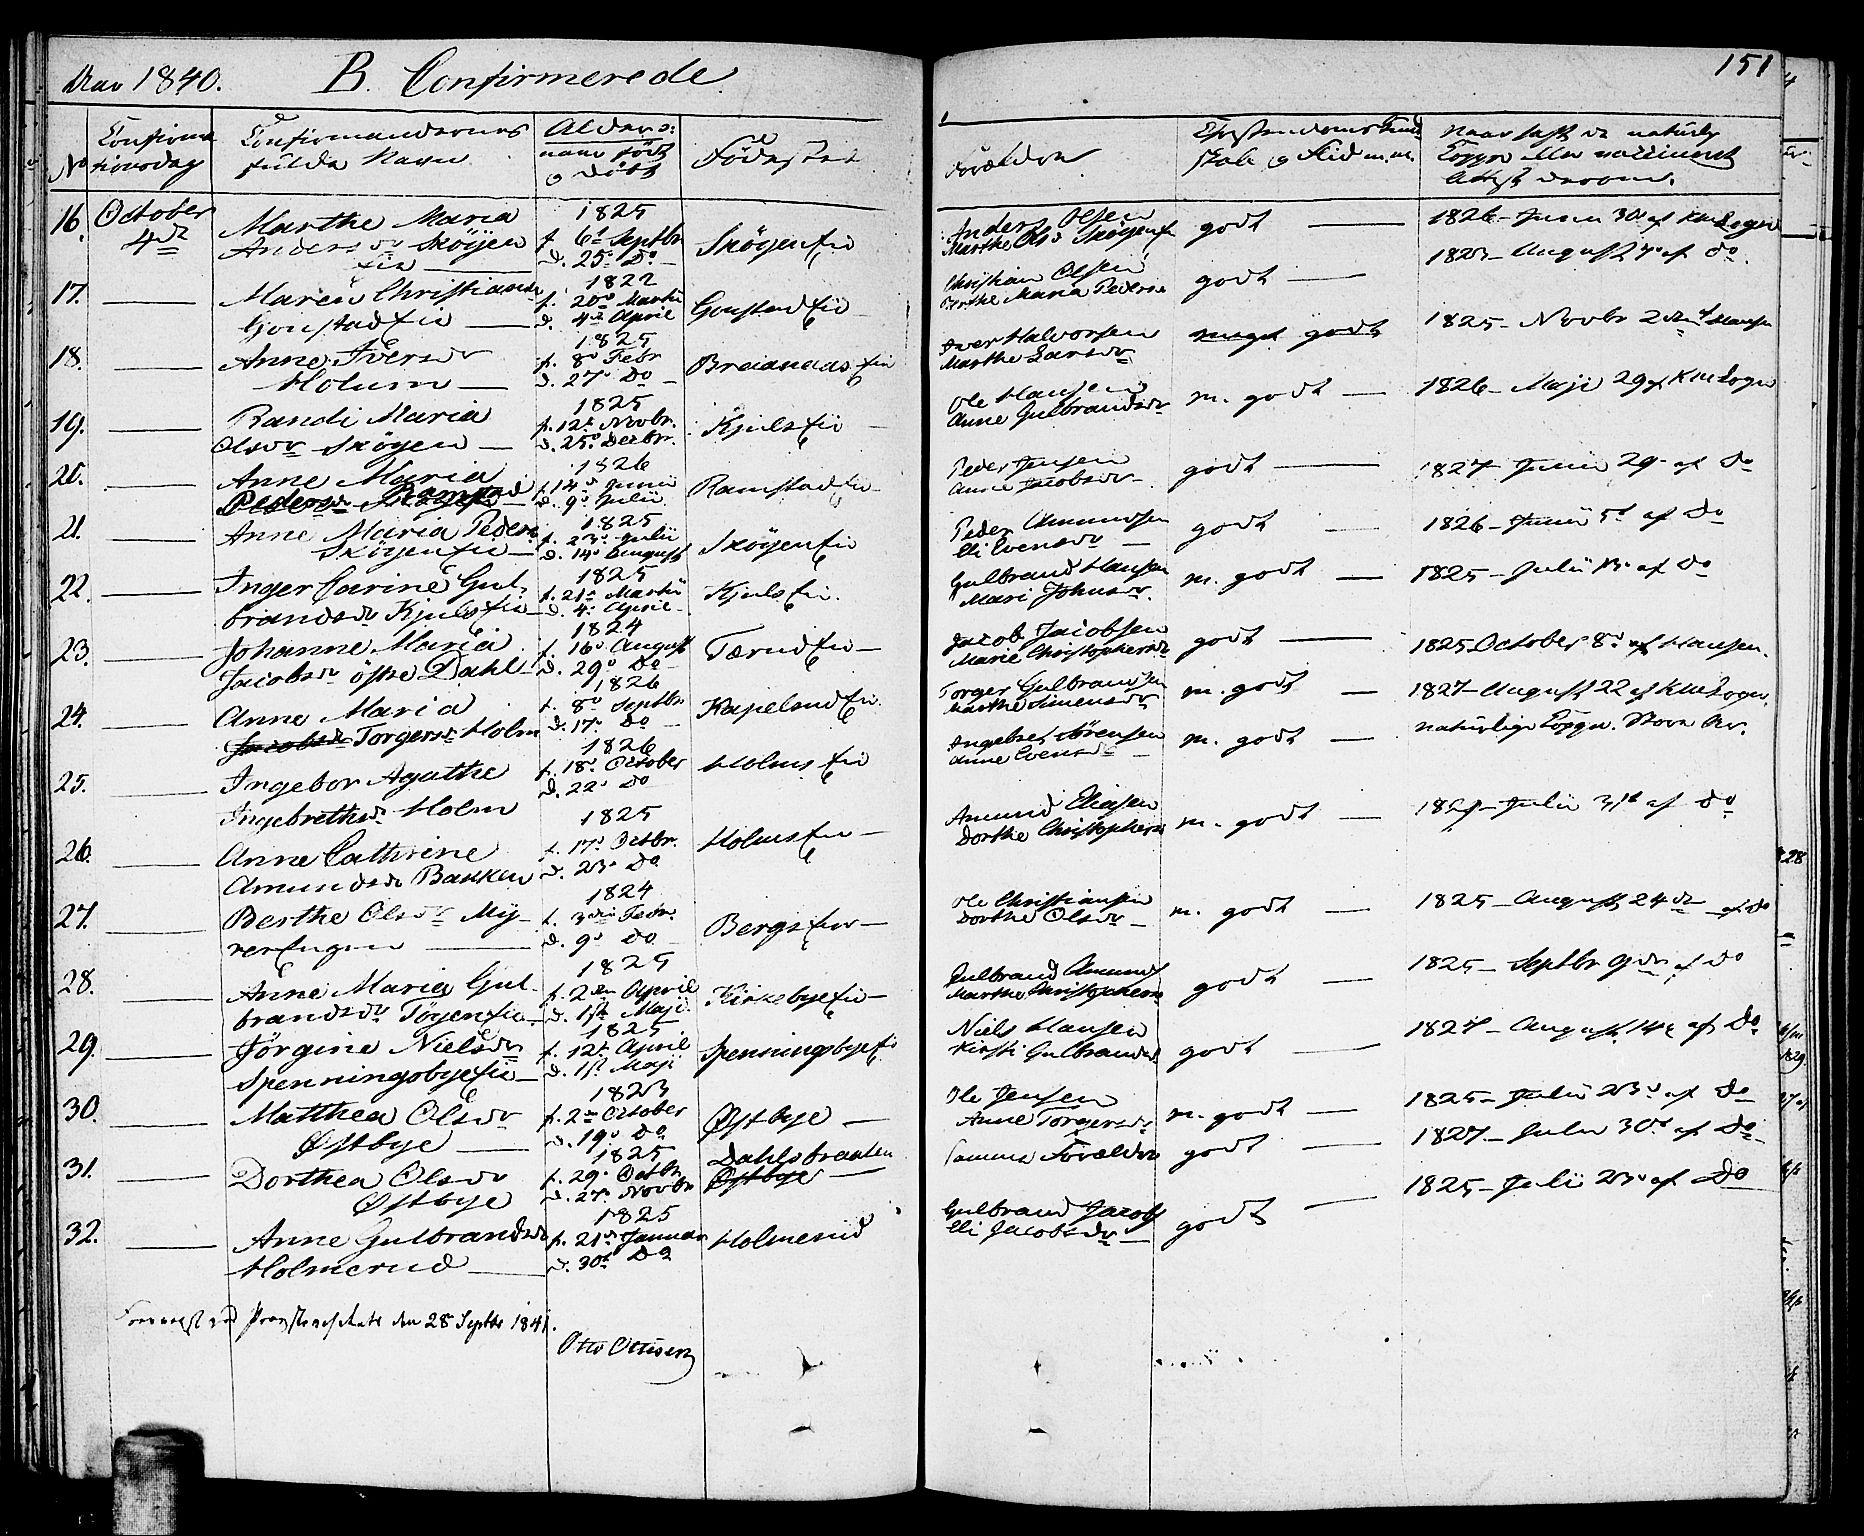 Aar 1840. B. Confirmerede.
151
No
Confirma
tionsdag
Confirmandernes
fulde Navn
Alder:
naar født
og døbt
Fødested
Forældre
Christendoms Kund
skab og Flid m.m.
Naar havt de naturlige
Kopper eller vaccineret
Attest derom.
16. October
4de
Marthe Maria
Andersdr Skøyen
eie
1825
f. 6te Septbr
d. 25 Do
Skøyeneie
Anders Olsen
Marthe Olsd Skøyene
godt
1826 - Junii 30 af
17.
Maren Christiansd
Gonstadeie
1822
f. 20 Martii
d. 4de April
Gonstadeie
Christian Olsen
Berthe Maria Pedersd
godt
1823 - August af Do.
18.
Anne Iversdr
Holum
1825
f. 8 Febr
d. 27 Do
Iver Halvorsen
Marthe Larsdr
meget godt
1825 - Novbr 2den af Hansen
19.
Randi Maria
Olsdr Skøyen
1825
f. 12te Novbr.
d. 25 Decbr.
Kjulseie
Ole Hansen
Anne Gulbrandsdr
m. godt
1826 - Maji 29 af
20.
Anne Maria
Pedersdr Ramstad
1826
f. 14de Junii
d. 9 Julii
Ramstadeie
Peder Jensen
Anne Jacobsdr
godt
1827 - Junii 29 af Do
21.
Anne Maria Peders
Skøyeneie
1825
f. 23 Julii
d. 14 August
Skøyeneie
Peder Amundsen
Eli Evensdr
godt
1826 - Junii 5te af Do
22.
Inger Carine Gul-
brandsdr Kjulseie
1825
f. 21 Martii
d. 4 April
Kjulseie.
Gulbrand Hansen
Mari Johnsdr.
m. godt
1825 - Julii 13 af Do
23.
Johanne Maria
Jacobsdr østre Dahl
1824
f. 16 August
d. 29 Do
Tærudeie
Jacob Jacobsen
Marie Christophersdr
godt
1825 October 8 af Hansen.
24.
Anne Maria
Jacobsdr Torgersdr Holm
1826
f. 8 Septbr
d. 17 Do
Kapelsudeie.
Torger Gulbrandsen
Marthe Simensdr
m. godt
1827 - August 22 af
25.
Ingebor Agathe
Ingebrethsdr Holm
1826
f. 18 October
d. 22 Do
Holmseie
Ingebret Sørensen
Anne Evensdr
m. godt
naturlige Kopper. Store Ar.
26.
Anne Cathrine
Amundsdr Bakken
1825
f. 17 Octbr.
d. 23 Do
Holmseie
Amund Eliasen
Dorthe Christophersd
m. godt
Julii 31te af Do
27.
Berthe Olsdr My-
rerengen
1824
f. 3die Febr.
d. 9 Do
Bergseie
Ole Christiansen
Dorthe Olsdr
m. godt
1825 - August 24de af Do
28.
Anne Maria Gul-
brandsdr Tøyeneie
1825
f. 2den April
d. 1ste Maji
Kirkebyeeie
Gulbrand Amunds
Marthe Christophersd
godt
1825 - Septbr 9de af Do
29.
Jørgine Nielsdr
Spenningsbyeeie
1825
f. 12te April
d. 1ste Maji
Spenningsbyeeie
Niels Hansen
Kirsti Gulbrandsd
godt
1827 - August 14de af Do
30.
Matthea Olsdr
Østbye
1823
f. 2den October
d. 19 Do
Østbye
Ole Jensen
Anne Torgersdr
m. godt
1825 - Julii 23 af Do
31.
Dorthea Olsdr
Østbye
1825
f. 29 Octbr
d. 27 Novbr
Dahlsbraaten
Østbye
Samme Forældre
godt
1827 - Julii 30te af Do
32.
Anne Gulbrandsdr
Holmerud
1825
f. 21de Januar
d. 30te Do
Holmerud
Gulbrand Jacobs
Eli Jacobsdr
godt
1825 - Julii 23 af Do
Foreviist ved Provstevisitats den 28 Septbr 1841.
Otto Ottesen